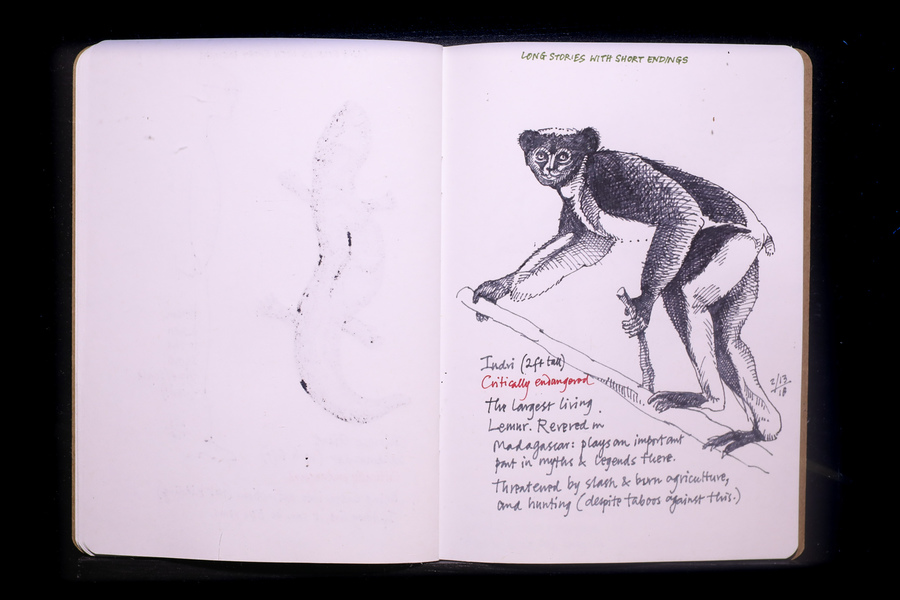 LONG STORIES WITH SHORT ENDINGS
Indri (2ft tall)
Critically endangered
The largest living
Lemur. Revered in
Madagascar: plays an important
part in myths & legends there.
Threatened by slash & burn agriculture,
and hunting (despite taboos against this.)
2/13
18